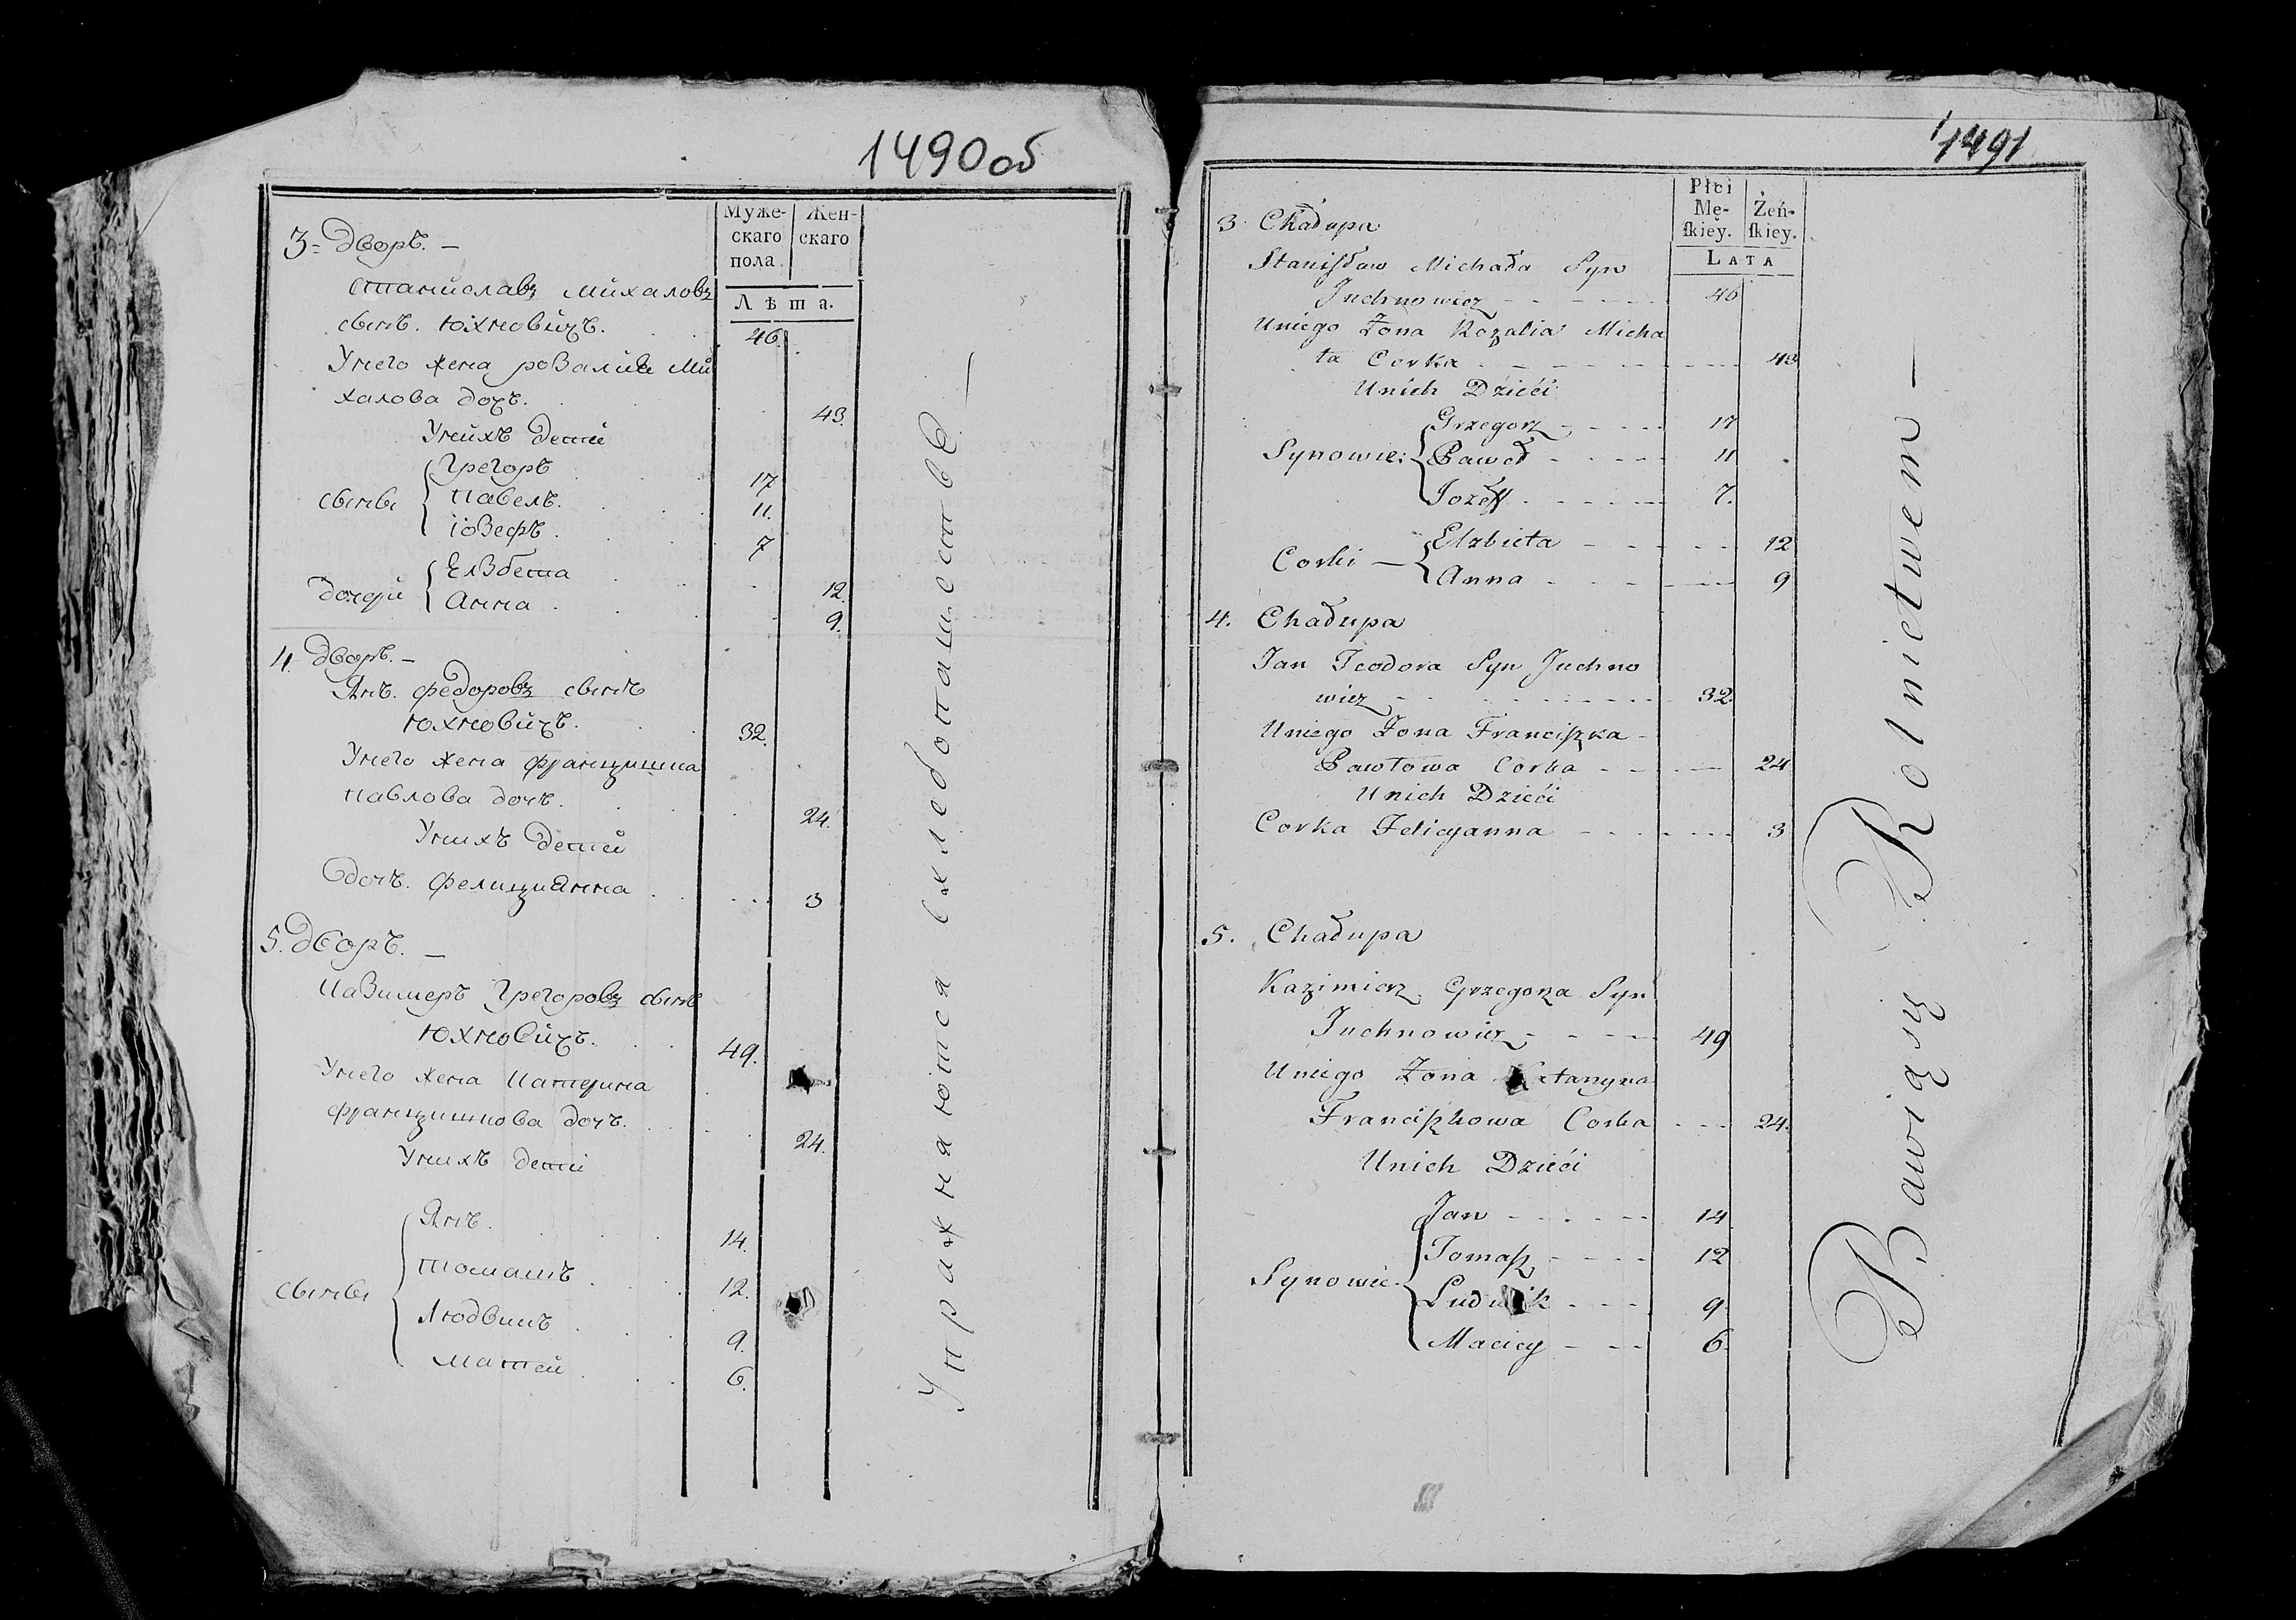 1490 об
Муже-
скаго
пола.
Жен-
скаго
Лѣта.
3= дворъ. —
станиславъ михаловъ
сынъ. юхновичъ. 46.
Унего жена розалия Ми
халова дочъ. 43.
Унихъ дети
сыны
грегоръ 17
павелъ. 11.
іозефъ. 7
дочери
Елзбета 12.
Анна. 9.
4. дворъ. —
Янъ. федоровъ сынъ
юхновичъ. 32.
Унего жена францишка
павлова дочъ. 24.
Унихъ дети
дочъ. фелициянна 3
5. дворъ. —
казимеръ грегоровъ сынъ
юхновичъ. 49.
Унего жена катерина
францишкова дочъ. 24.
Унихъ дети
сыны
Янъ. 14.
томашъ 12.
людвикъ 9.
матей 6.
Упражнаются вхлебопашестве —
1491
Płci
Mę-
ſkiey.
Żeń-
ſkiey.
LATA
3. Chałupa
Stanisław Michała Syn
Juchnowicz 46
Uniego Żona Rozalia Micha
ła Corka 43
Unich Dzieći
Synowie:
Grzegorz 17
Paweł 11
Jozeff 7.
Corki —
Elzbieta 12
Anna 9
4. Chałupa
Jan Teodora Syn Juchno
wicz 32.
Uniego Żona Franciszka -
Pawłowa Corka 24
Unich Dzieći
Corka Felicyanna 3
5. Chałupa
Kazimierz Grzegorza Syn
Juchnowicz 49
Uniego Żona Katarzyna
Franciszkowa Corka 24.
Unich Dzieći
Synowie.
Jan 14
Tomasz 12
Ludwik 9
Maciey 6.
Bawią się Rolnictwem —